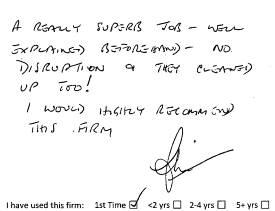 A REALLY SUPERB JOB - WELL
EXPLAINED BEFOREHAND - NO
DISRUPTION & THEY CLEANED
UP TOO!
I WOULD HIGHLY RECOMMEND
THIS FIRM
I have used this firm: 1st Time ☑ <2 yrs ☐ 2-4 yrs ☐ 5+ yrs ☐